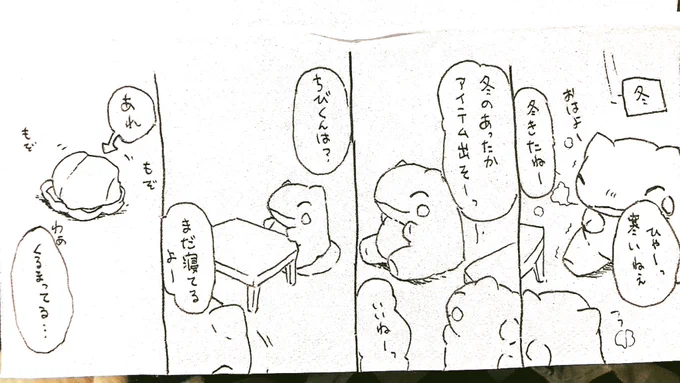 冬
おはよ、
ひゃーっ
寒いねぇ
冬きたねー
冬のあったか
アイテム出そーっ
いいねーっ
ちびくんは？
まだ寝てる
よー
あれ
もぞ
もぞ
わぁ
くるまってる…